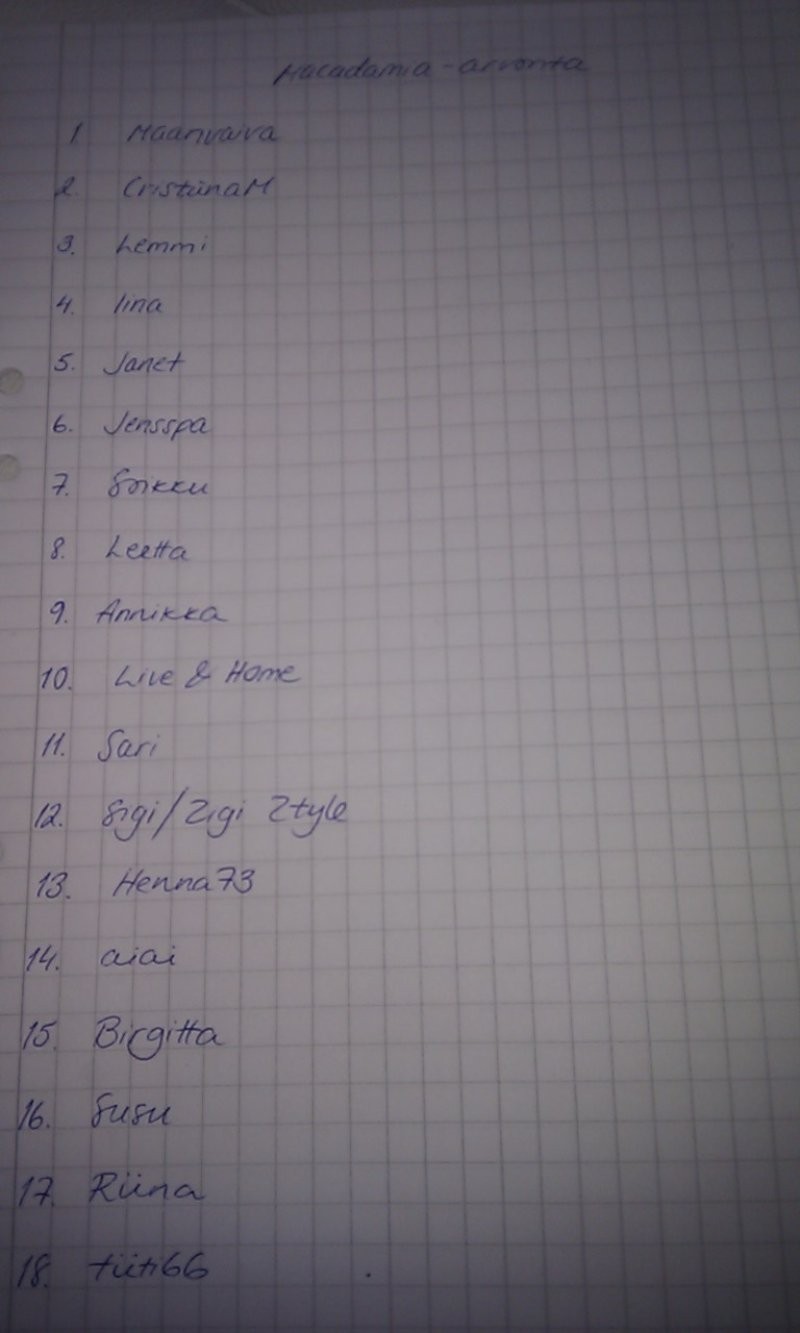 Macadamia-arvonta
1 Maanvaiva
2. CristiinaM
3. Lemmi
4. Iina
5. Janet
6. Jensspa
7. Soikku
8. Leetta
9. Annikka
10. Live & Home
11. Sari
12. Sigi/Zigi Ztyle
13. Henna73
14. aiai
15. Birgitta
16. Susu
17. Riina
18. tiiti66